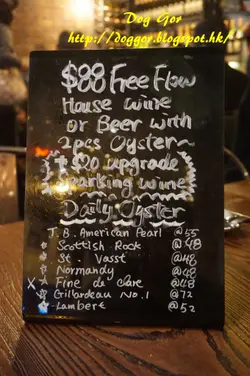 Dog Gor
http://doggor.blogspot.hk/
$88 Free Flow
House wine
or Beer with
2pcs Oyster~
+ $20 upgrade
sparking wine
Daily Oyster
T.B. American Pearl @55
Scottish Rock @48
St. Vasst @48
Normandy @48
X Fine de Clare @48
Gillardeau No.1 @72
Lambert @52